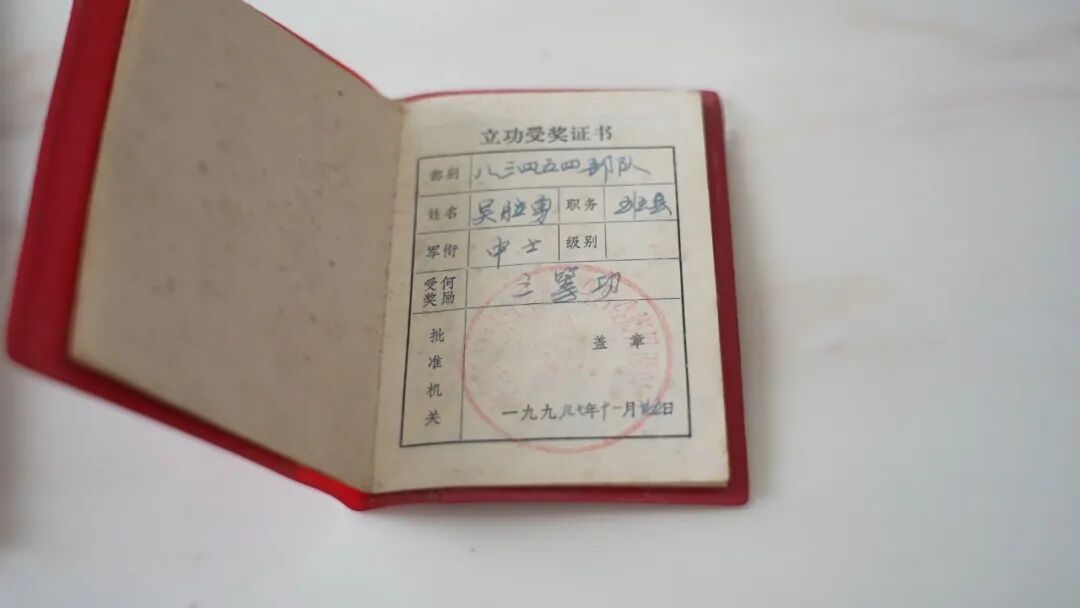 立功受奖证书
部别 八三四五四部队
姓名 吴胜勇 职务 班长
军衔 中士 级别
受何奖励 三等功
批准机关 盖章
一九九 七年十一月 日